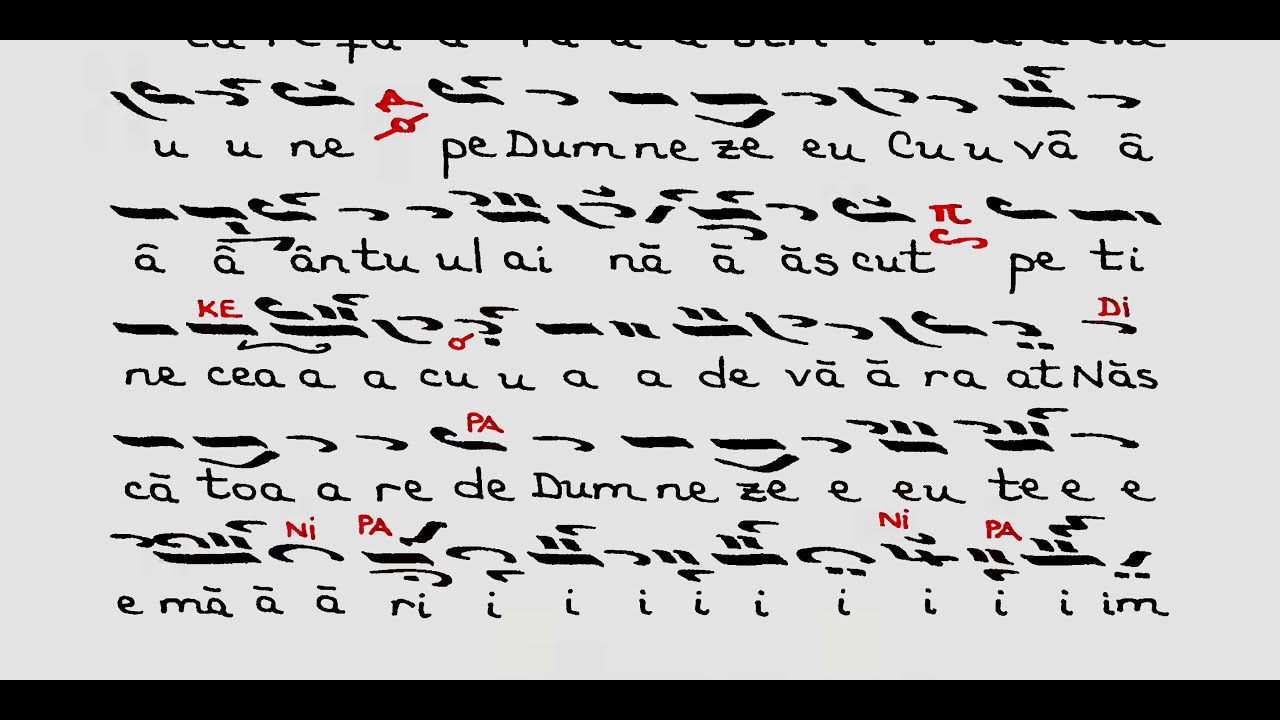 u u ne pe Dum ne ze eu Cu u vâ â
â â ântu ul ai nă ă ăs cut π pe ti
KE Di
ne cea a a cu u a a de vă ă ra at Năs
PA
că toa a re de Dum ne ze e eu te e e
Ni PA Ni PA
e mă ă ă ri i i i i i i i i i im